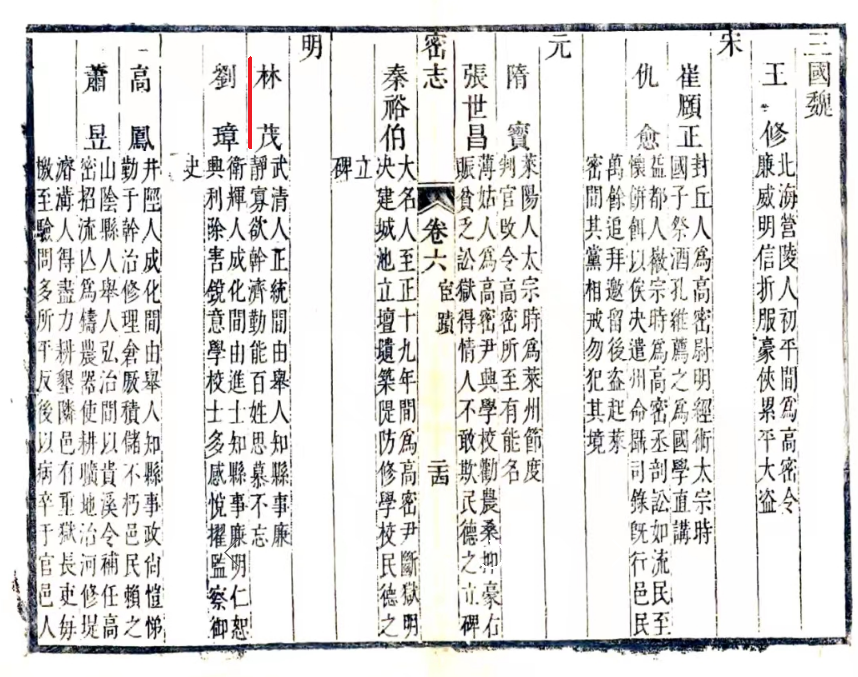 三國魏
王修
北海營陵人初平間爲高密令
廉威明信折服豪俠累平大盜
宋
崔頤正
封丘人爲高密尉明經術太宗時
國子祭酒孔維薦之爲國學直講
仇愈
益都人徽宗時爲高密丞剖訟如流民至
懷餅餌以俟决遣州命攝司錄旣行邑民
萬餘追拜邀留後盜起萊
密間其黨相戒勿犯其境
元
隋寶
萊陽人太宗時爲萊州節度
判官改令高密所至有能名
張世昌
薄姑人爲高密尹興學校勸農桑抑豪右
賑貧乏訟獄得情人不敢欺民德之立碑
密志
卷六
宦蹟
二十四
秦裕伯
大名人至正十九年間爲高密尹斷獄明
决建城池立壇壝築隄防修學校民德之
立
碑
明
林茂
武清人正統間由舉人知縣事廉
靜寡欲幹濟勤能百姓思慕不忘
劉璋
衛輝人成化間由進士知縣事廉明仁恕
興利除害銳意學校士多感悅擢監察御
史
高鳳
井陘人成化間由舉人知縣事政尙愷悌
勤于幹治修理倉厫積儲不朽邑民賴之
蕭昱
山陰縣人舉人弘治間以貴溪令補任高
密招流亾爲鑄農器使耕曠地治河修堤
濬溝人得盡力耕墾隣邑有重獄長吏每
檄至驗問多所平反後以病卒于官邑人